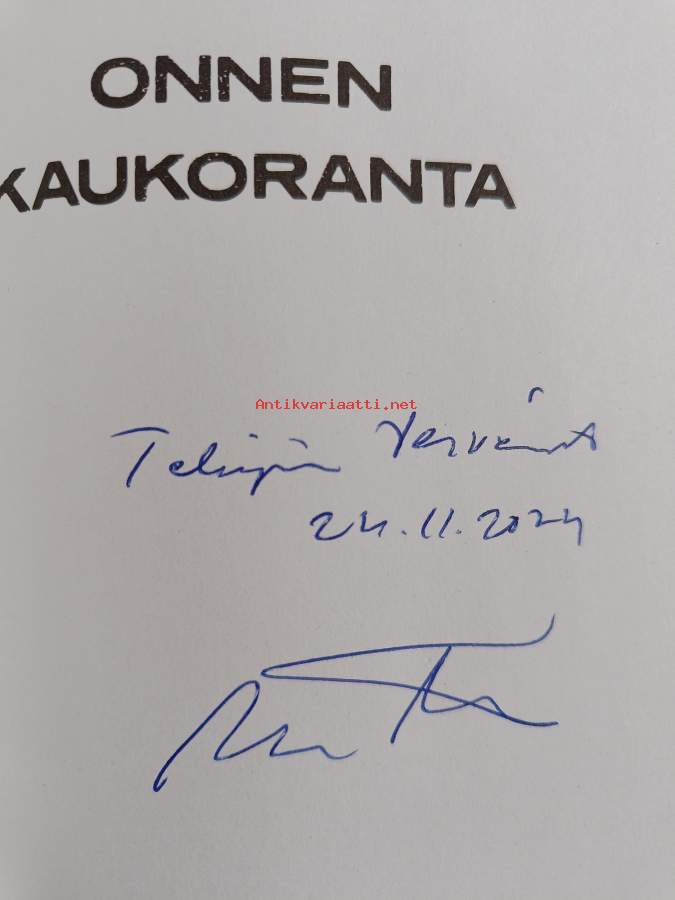 ONNEN
KAUKORANTA
Antikvariaatti.net
Tekijän terveiset
24.11.2024